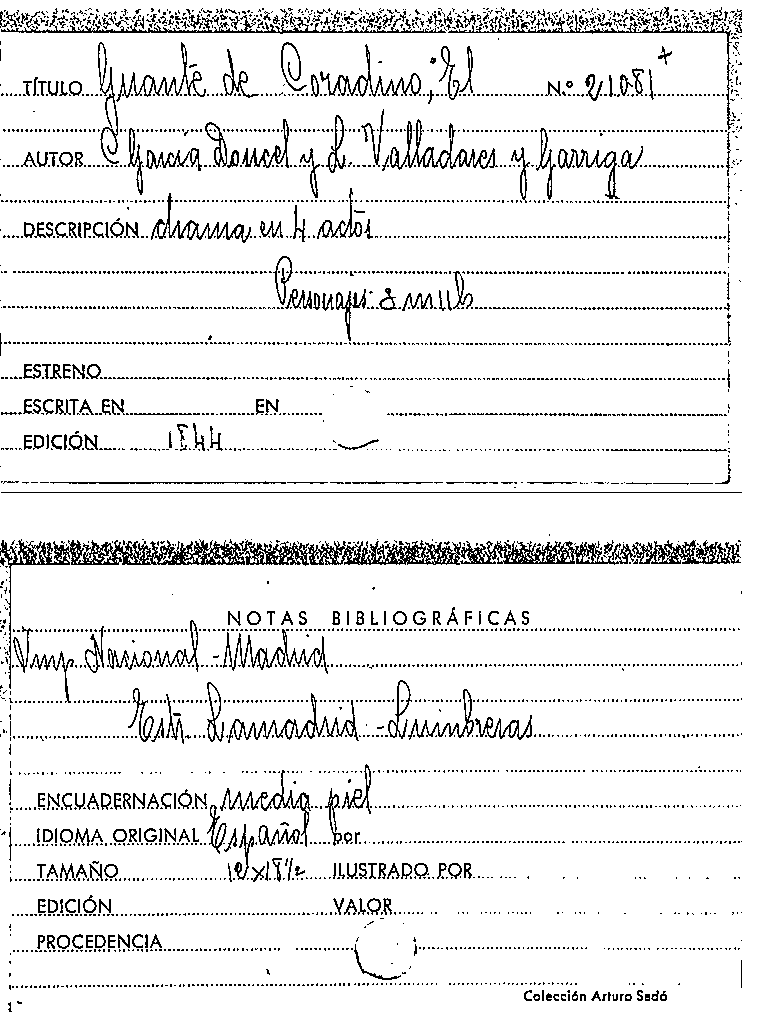 TÍTULO Guante de Coradino, El N.º 21081 +
AUTOR C García Doncel y L. Valladares y Garriga
DESCRIPCIÓN drama en 4 actos
Personajes: 8 m 11 b
ESTRENO
ESCRITA EN EN
EDICIÓN 1844
NOTAS BIBLIOGRÁFICAS
Imp. Nacional - Madrid
Estr. Lamadrid - Lumbreras
ENCUADERNACIÓN media piel
IDIOMA ORIGINAL Español por
TAMAÑO 12x18½ ILUSTRADO POR
EDICIÓN VALOR
PROCEDENCIA
Colección Arturo Sedó